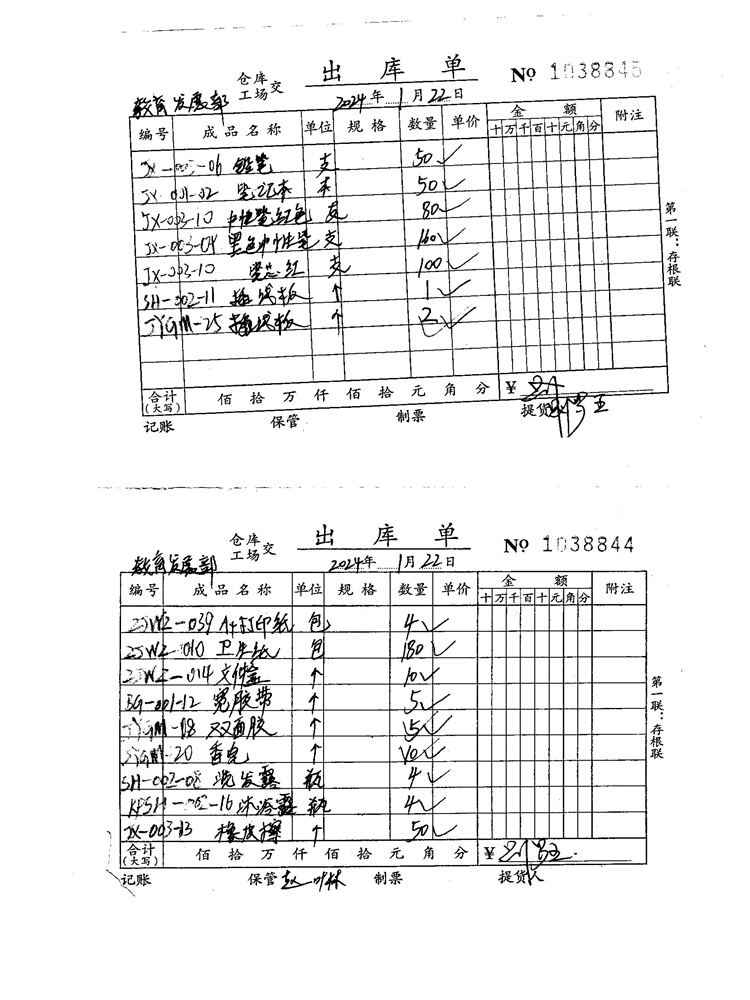 仓库 出库单 № 1038845
教育发展部 工场交 2024年1月22日
编号 成品名称 单位 规格 数量 单价 金额 附注
十万千百十元角分
铅笔 支 50
JX-001-02 笔记本 本 50
JX-003-10 中性笔红色 支 80
JX-003-04 黑色中性笔 支 160
JX-003-10 笔芯红 支 100
SH-002-11 插线板 个 1
JYGM-25 插线板 个
合计(大写) 佰拾万仟佰拾元角分 ¥
记账 保管 制票 提货
第一联：存根联
仓库 出库单 № 1038844
教育发展部 工场交 2024年1月22日
编号 成品名称 单位 规格 数量 单价 金额 附注
十万千百十元角分
ZJWZ-039 A4打印纸 包 4
ZJWZ-010 卫生纸 包 180
ZJWZ-014 文件盒 个 10
BG-001-12 宽胶带 个 5
JYGM-18 双面胶 个 15
JYGM-20 香皂 个 10
SH-002-08 洗发露 瓶 4
沐浴露 瓶 4
JX-003-13 橡皮擦 个 50
合计(大写) 佰拾万仟佰拾元角分 ¥
记账 保管 制票 提货人
第一联：存根联